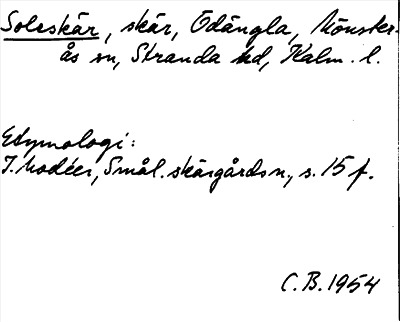 Soleskär, skär, Ödängla, Mönster-
ås sn, Stranda hd, Kalm. l.
Etymologi:
I. Modéer, Smål. skärgårdsn., s. 15 f.
C.B. 1954